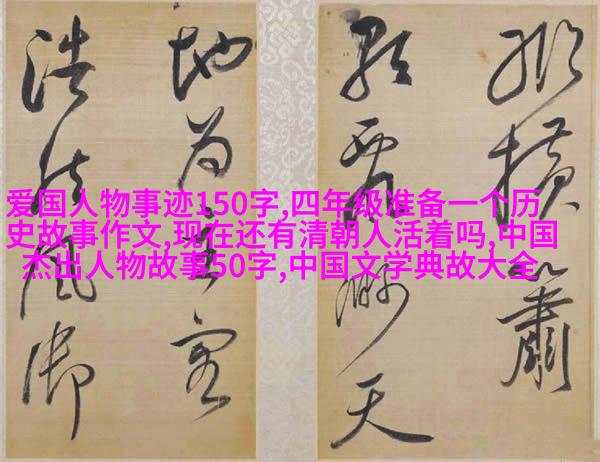 爱国人物事迹150字,四年级准备一个历
史故事作文,现在还有清朝人活着吗,中国
杰出人物故事50字,中国文学典故大全
橫
天
地為
浩然風御